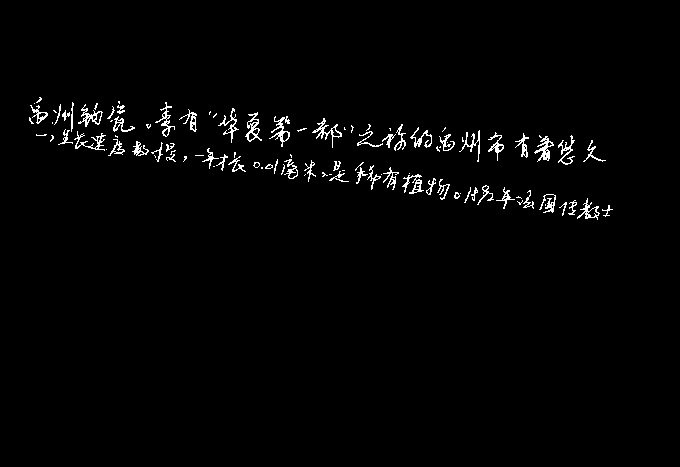 禹州钧瓷。素有“华夏第一都”之称的禹州市有着悠久
一,生长速度极慢,一年才长0.01厘米,是稀有植物。1892年法国传教士